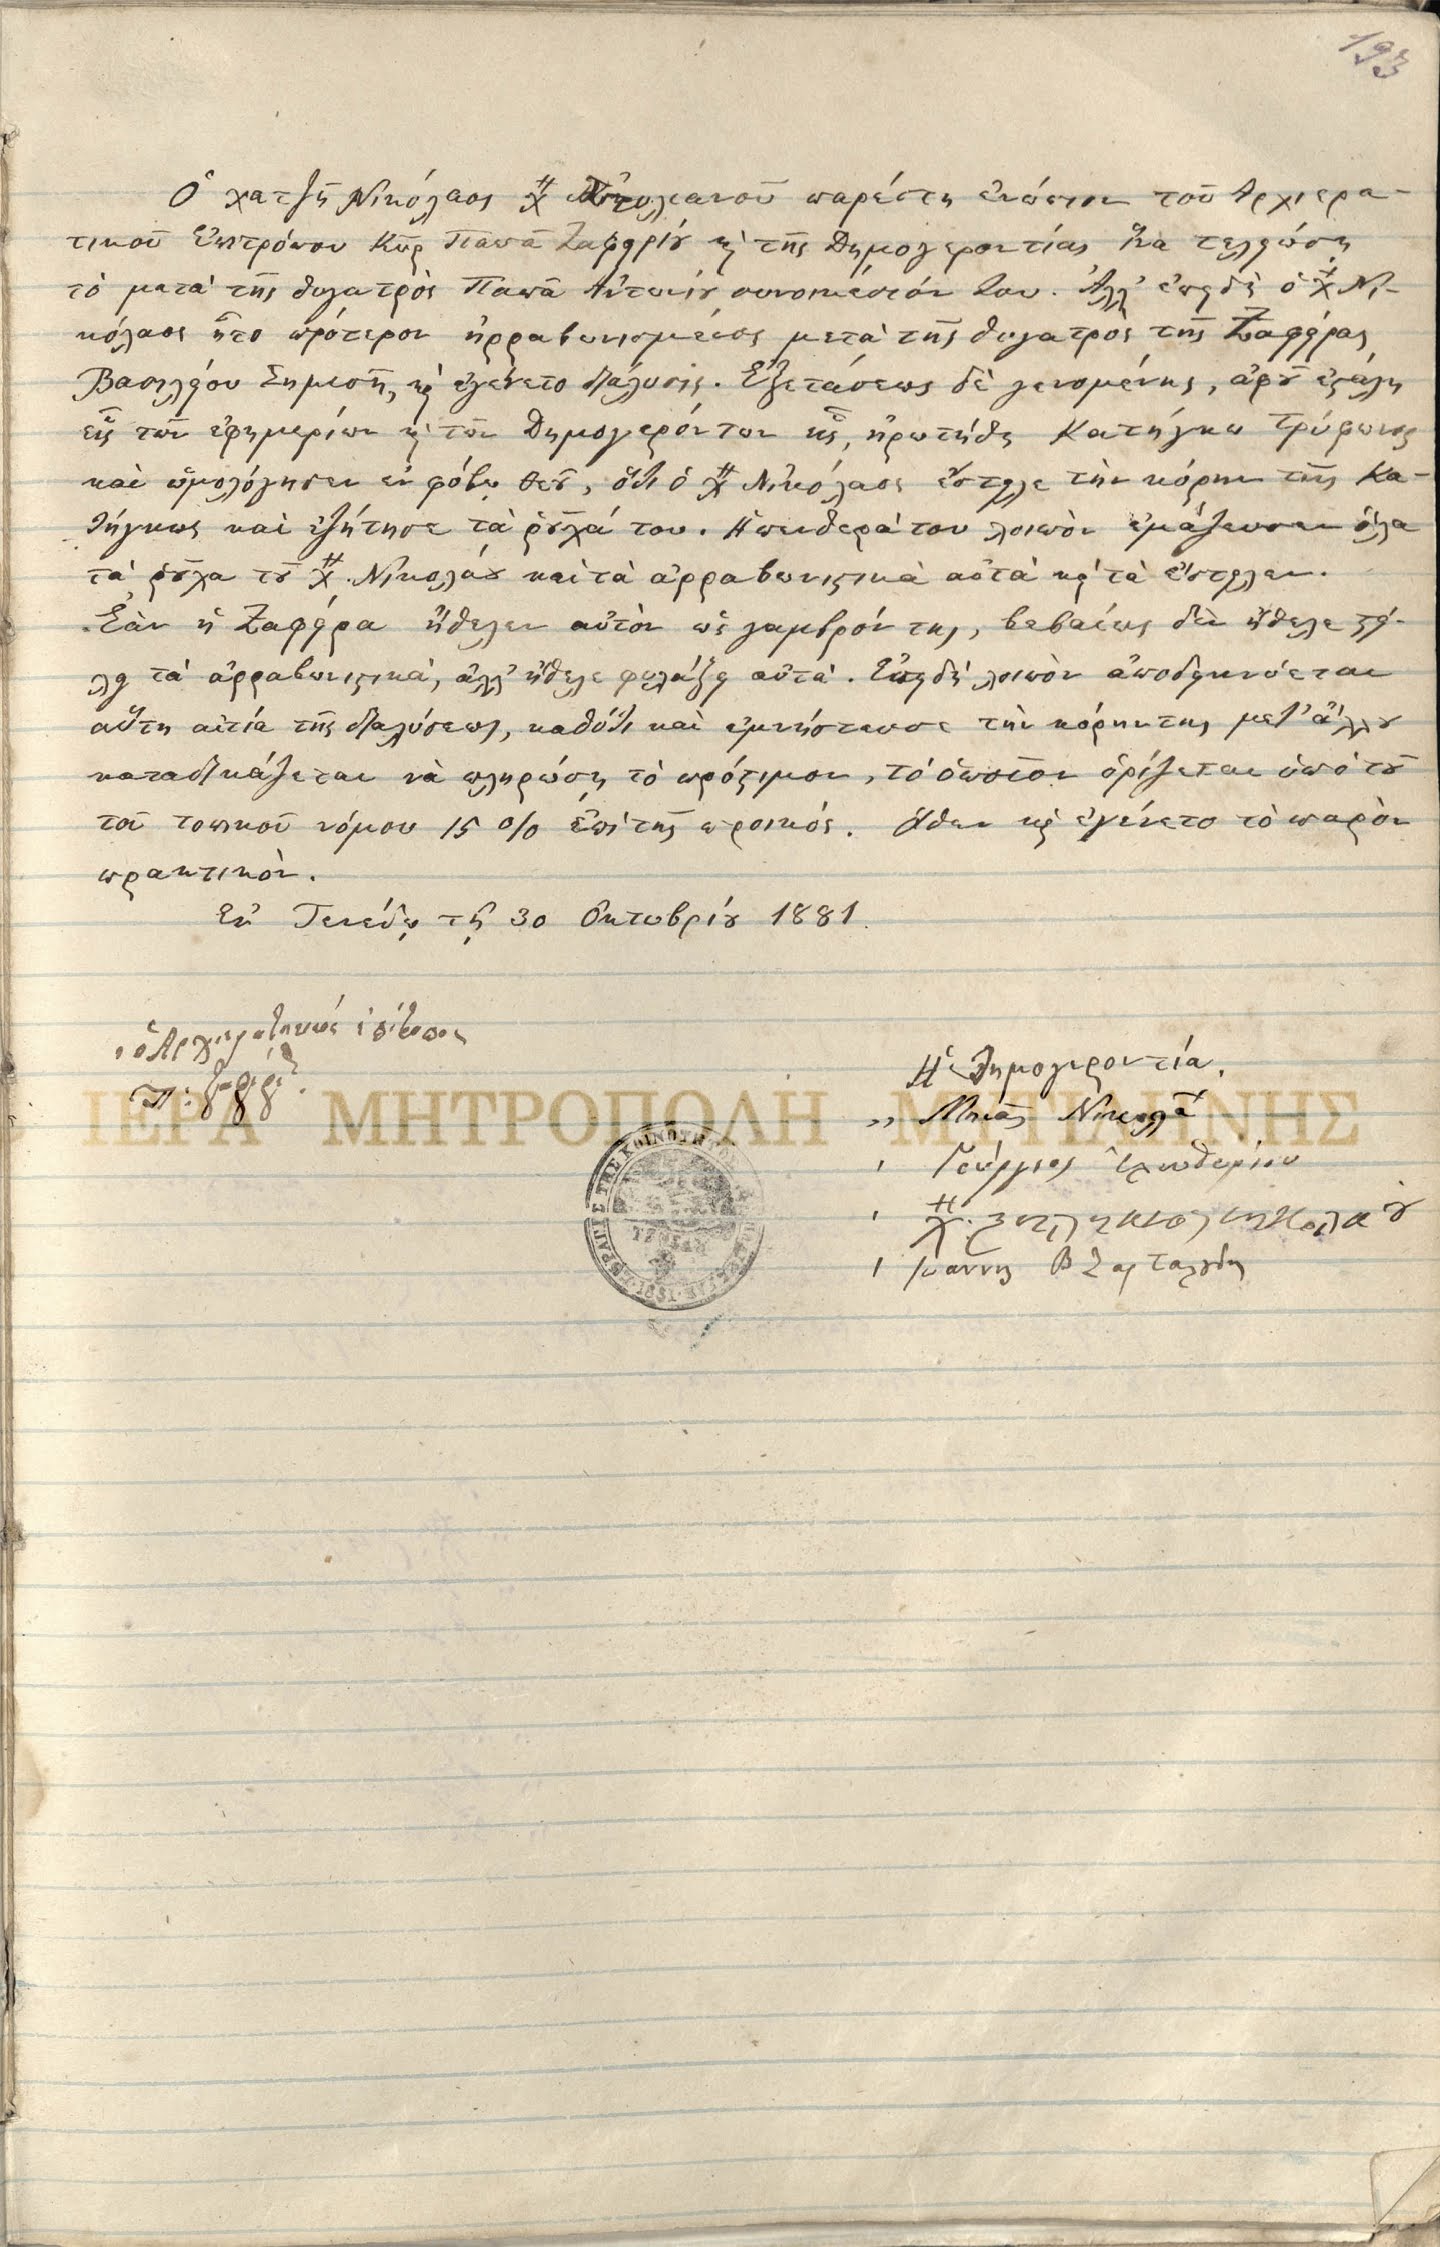 193
Ὁ χατζῆ Νικόλαος Χ΄΄ παρέστη ἐνώπιον τοῦ Ἀρχιερα-
τικοῦ Ἐπιτρόπου Κὺρ Παπᾶ Ζαφειρίου καὶ τῆς Δημογεροντίας ἵνα τελειώσῃ
τὸ μετὰ τῆς θυγατρὸς Παπᾶ Ἀντωνίου συνοικέσιόν του. Ἀλλ' ἐπειδὴ ὁ Χ΄΄ Νι-
κόλαος ἦτο πρότερον ἠρραβωνισμένος μετὰ τῆς θυγατρὸς τῆς Ζαφείρας
Βασιλείου Σημισῆ, καὶ ἐγένετο διάλυσις. Ἐξετάσεως δὲ γενομένης, ἀφοῦ ἐστάλη
εἷς τῶν ἐφημερίων καὶ τῶν Δημογερόντων εἷς, ἠρωτήθη Κατήγκω Τρύφωνος
καὶ ὡμολόγησεν ἐν φόβῳ Θεοῦ, ὅτι ὁ Χ΄΄ Νικόλαος ἔστειλε τὴν κόρην τῆς Κα-
τήγκως καὶ ἐζήτησε τὰ ῥοῦχά του. Ἡ πενθερά του λοιπὸν ἐμάζευσεν ὅλα
τὰ ῥοῦχα τοῦ Χ΄΄ Νικολάου καὶ τὰ ἀρραβωνιστικὰ αὐτὰ καὶ τὰ ἔστειλεν.
Ἐὰν ἡ Ζαφείρα ἤθελεν αὐτὸν ὡς γαμβρόν της, βεβαίως δὲν ἤθελε στεί-
λει τὰ ἀρραβωνιστικά, ἀλλ' ἤθελε φυλάξει αὐτά. Ἐπειδὴ λοιπὸν ἀποδεικνύεται
αὕτη αἰτία τῆς διαλύσεως, καθότι καὶ ἐμνήστευσε τὴν κόρην της μετ' ἄλλου
καταδικάζεται νὰ πληρώσῃ τὸ πρόστιμον, τὸ ὁποῖον ὁρίζεται ὑπὸ τοῦ
τοῦ τοπικοῦ νόμου 15 0/0 ἐπὶ τῆς προικός. Ὅθεν καὶ ἐγένετο τὸ παρὸν
πρακτικόν.
Ἐν Τενέδῳ τῇ 30 Ὀκτωβρίου 1881
ὁ Ἀρχιερατικὸς ἐπίτροπος
Π:
Ἡ Δημογεροντία.
,, Μηνᾶς Νικολλᾶ
, Γεώργιος Ἐλευθερίου
, Χ΄΄
, Ἰωάννης Β
ΙΕΡΑ ΜΗΤΡΟΠΟΛΗ ΜΥΤΙΛΗΝΗΣ